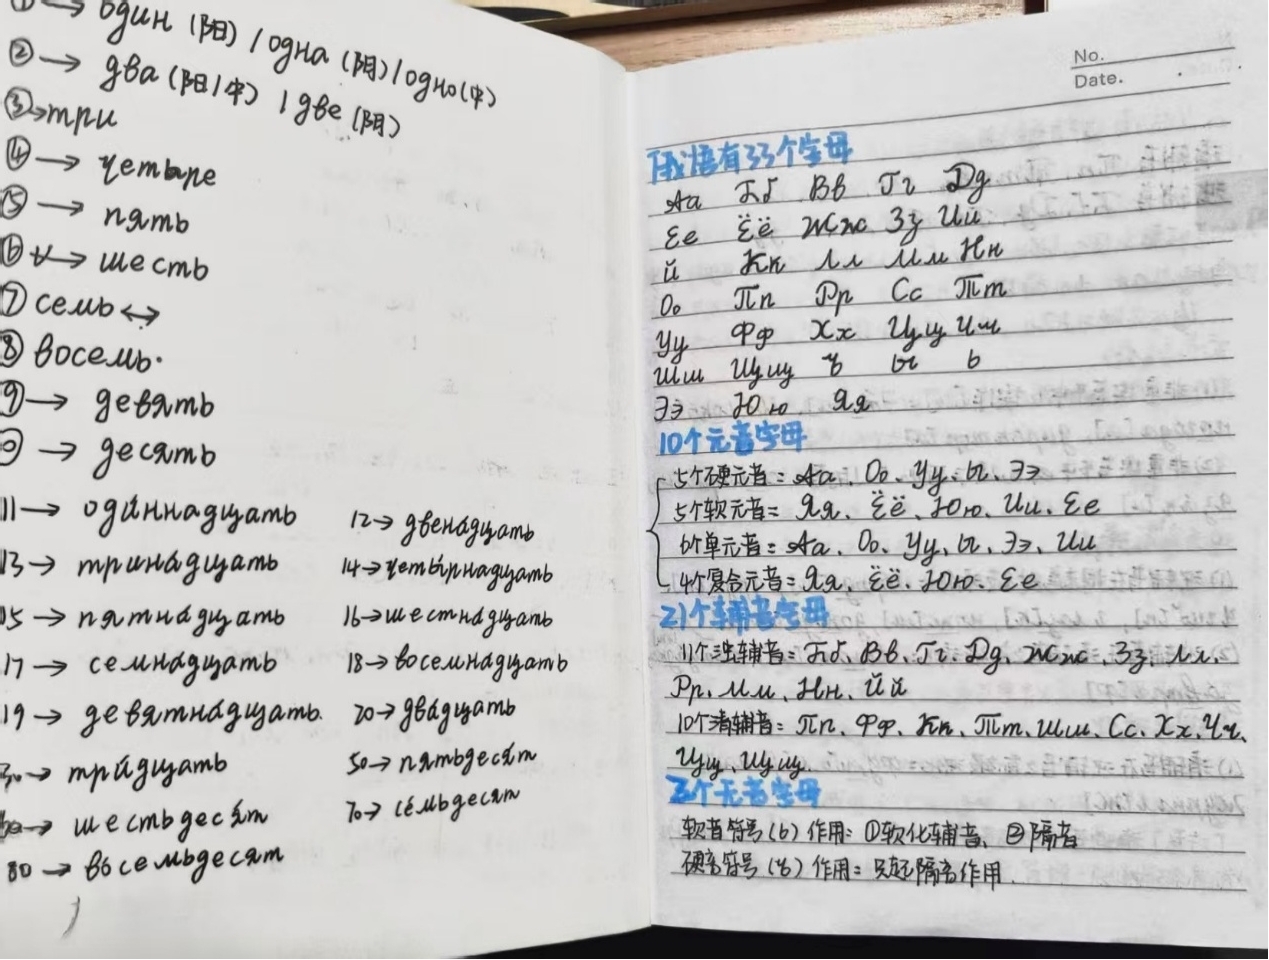 ① → один (阳) / одна (阴) / одно (中)
② → два (阳/中) / две (阴)
③→три
④ → четыре
⑤ → пять
⑥ → шесть
⑦ семь ↔
⑧ восемь.
⑨ → девять
→ десять
11 → оди́ннадцать 12→ двена́дцать
13 → трина́дцать 14→четы́рнадцать
15 → пятна́дцать 16→шестна́дцать
17 → семна́дцать 18→восемна́дцать
19 → девятна́дцать. 20→два́дцать
30→ три́дцать 50→ пятьдеся́т
→ шестьдеся́т 70→ се́мьдесят
80 → во́семьдесят
No.
Date.
俄语有33个字母
Аа Бб Вв Гг Дд
Ее Ёё Жж Зз Ии
й Кк Лл Мм Нн
Оо Пп Рр Сс Тт
Уу Фф Хх Цц Чч
Шш Щщ ъ ы ь
Ээ Юю Яя
10个元音字母
5个硬元音=Аа、Оо、Уу、ы、Ээ
5个软元音=Яя、Ёё、Юю、Ии、Ее
6个单元音=Аа、Оо、Уу、ы、Ээ、Ии
4个复合元音=Яя、Ёё、Юю、Ее
21个辅音字母
11个浊辅音=Бб、Вв、Гг、Дд、Жж、Зз、Лл、
Рр、Мм、Нн、Йй
10个清辅音=Пп、Фф、Кк、Тт、Шш、Сс、Хх、Чч、
Цц、Щщ
2个无音字母
软音符号(ь) 作用: ①软化辅音、②隔音
硬音符号(ъ) 作用=只起隔音作用.